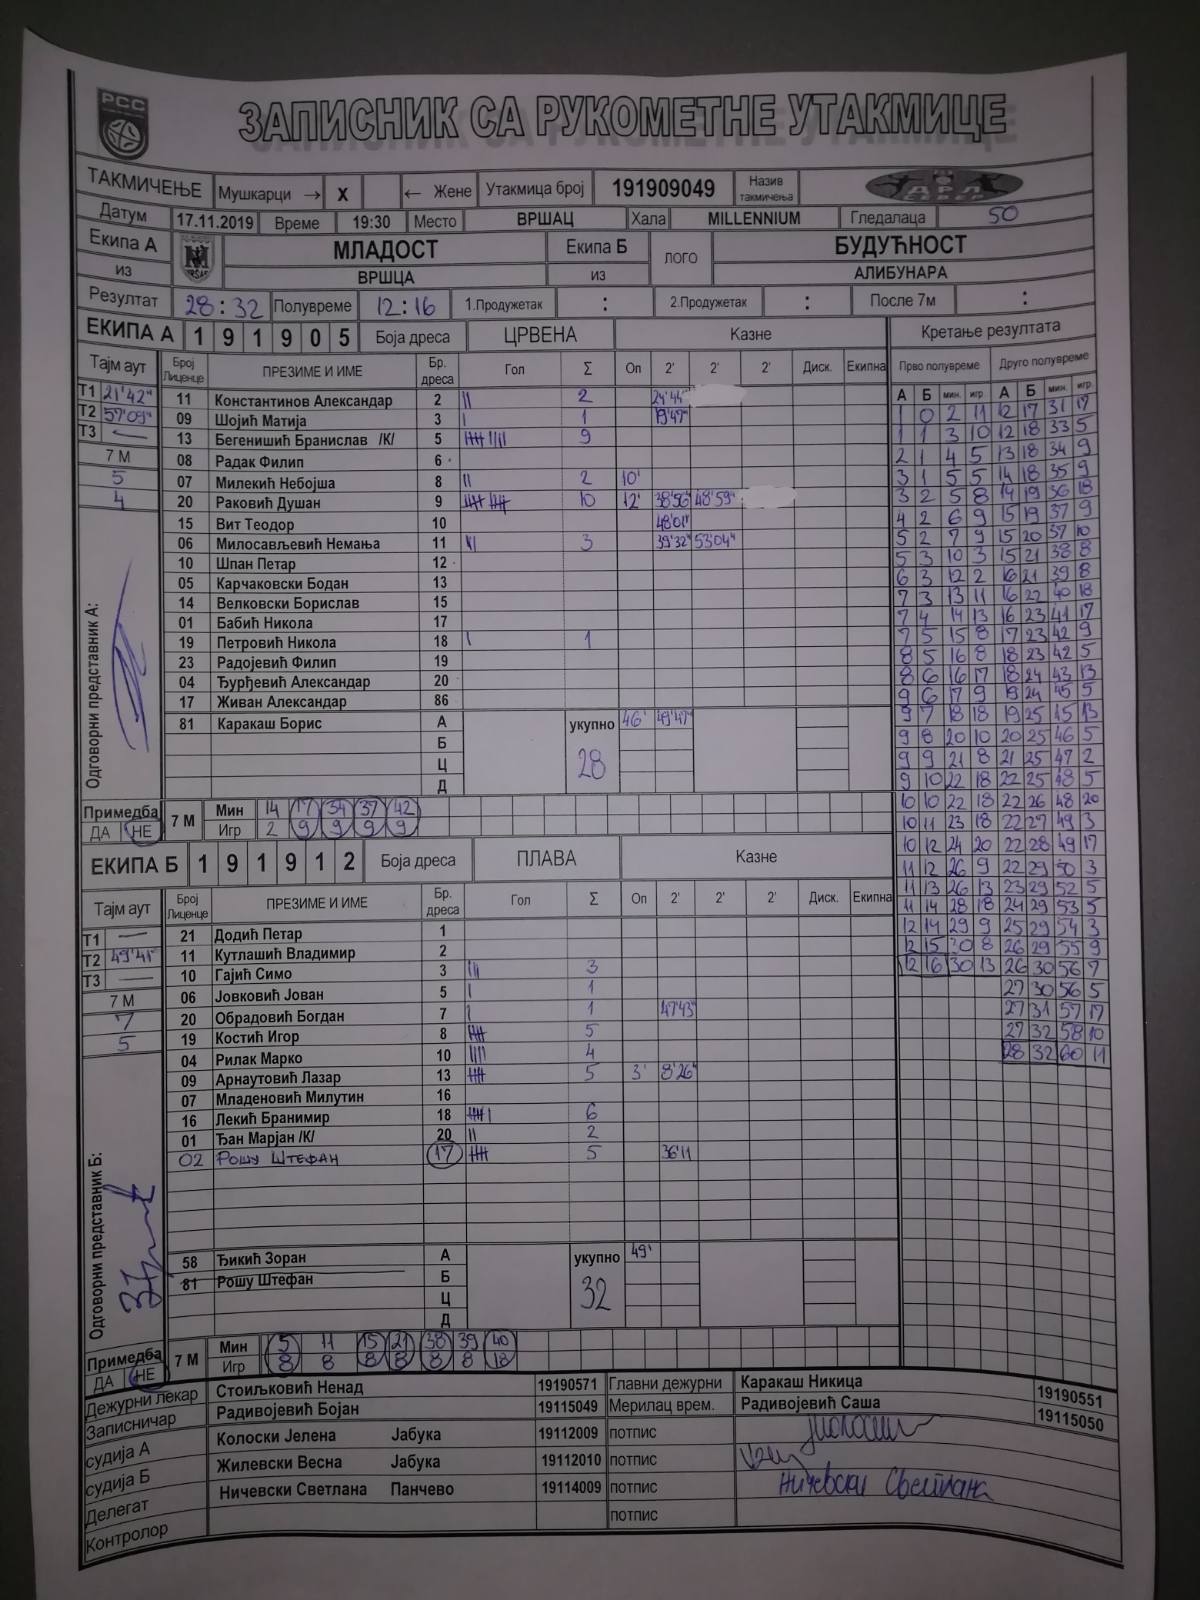 РСС
ЗАПИСНИК СА РУКОМЕТНЕ УТАКМИЦЕ
ТАКМИЧЕЊЕ Мушкарци → X ← Жене Утакмица број 191909049 Назив такмичења ДРЛ
Датум 17.11.2019 Време 19:30 Место ВРШАЦ Хала MILLENNIUM Гледалаца 50
Екипа А МЛАДОСТ Екипа Б ЛОГО БУДУЋНОСТ
из ВРШЦА из АЛИБУНАРА
Резултат 28:32 Полувреме 12:16 1.Продужетак : 2.Продужетак : После 7м :
ЕКИПА А 1 9 1 9 0 5 Боја дреса ЦРВЕНА Казне Кретање резултата
Тајм аут Број Лиценце ПРЕЗИМЕ И ИМЕ Бр. дреса Гол Σ Оп 2' 2' 2' Диск. Екипна
Прво полувреме Друго полувреме
А Б мин. игр А Б мин. игр.
Т1 21'42"
Т2 57'09"
Т3 —
7 М
5
4
11 Константинов Александар 2 || 2 24'44"
09 Шојић Матија 3 | 1 19'47"
13 Бегенишић Бранислав /К/ 5 9
08 Радак Филип 6
07 Милекић Небојша 8 || 2 10'
20 Раковић Душан 9 10 12' 38'56" 48'59"
15 Вит Теодор 10 48'01"
06 Милосављевић Немања 11 3 39'32" 53'04"
10 Шпан Петар 12
05 Карчаковски Бодан 13
14 Велковски Борислав 15
01 Бабић Никола 17
19 Петровић Никола 18 | 1
23 Радојевић Филип 19
04 Ђурђевић Александар 20
17 Живан Александар 86
81 Каракаш Борис А укупно 46' 49'47"
Б
Ц 28
Д
Одговорни представник А:
Примедба ДА НЕ
7 М Мин 14 17 34 37 42
Игр 2 9 9 9 9
1 0 2 11 12 17 31 17
1 1 3 10 12 18 33 5
2 1 4 5 13 18 34 9
3 1 5 5 14 18 35 9
3 2 5 8 14 19 36 18
4 2 6 9 15 19 37 9
5 2 7 9 15 20 37 10
5 3 10 3 15 21 38 8
6 3 12 2 16 21 39 8
7 3 13 11 16 22 40 18
7 4 14 13 16 23 41 17
7 5 15 8 17 23 42 9
8 5 16 8 18 23 42 5
8 6 16 17 18 24 43 13
9 6 17 9 19 24 45 5
9 7 18 18 19 25 45 13
9 8 20 10 20 25 46 5
9 9 21 8 21 25 47 2
9 10 22 18 22 25 48 5
10 10 22 18 22 26 48 20
10 11 23 18 22 27 49 3
10 12 24 20 22 28 49 17
11 12 26 9 22 29 50 3
11 13 26 13 23 29 52 5
11 14 28 18 24 29 53 5
12 14 29 9 25 29 54 3
12 15 30 8 26 29 55 9
12 16 30 13 26 30 56 7
27 30 56 5
27 31 57 17
27 32 58 10
28 32 60 11
ЕКИПА Б 1 9 1 9 1 2 Боја дреса ПЛАВА Казне
Тајм аут Број Лиценце ПРЕЗИМЕ И ИМЕ Бр. дреса Гол Σ Оп 2' 2' 2' Диск. Екипна
Т1 —
Т2 49'41"
Т3 —
7 М
7
5
21 Додић Петар 1
11 Кутлашић Владимир 2
10 Гајић Симо 3 ||| 3
06 Јовковић Јован 5 | 1
20 Обрадовић Богдан 7 | 1 47'43"
19 Костић Игор 8 5
04 Рилак Марко 10 |||| 4
09 Арнаутовић Лазар 13 5 3' 8'26"
07 Младеновић Милутин 16
16 Лекић Бранимир 18 6
01 Ђан Марјан /К/ 20 || 2
02 РОШУ ШТЕФАН 17 5 36'11
58 Ђикић Зоран А укупно 49'
81 Рошу Штефан Б
Ц 32
Д
Одговорни представник Б:
Примедба ДА НЕ
7 М Мин 5 11 15 21 38 39 40
Игр 8 8 8 8 8 8 18
Дежурни лекар Стоиљковић Ненад 19190571 Главни дежурни Каракаш Никица 19190551
Записничар Радивојевић Бојан 19115049 Мерилац врем. Радивојевић Саша 19115050
судија А Колоски Јелена Јабука 19112009 потпис
судија Б Жилевски Весна Јабука 19112010 потпис
Делегат Ничевски Светлана Панчево 19114009 потпис Ничевски Светлана
Контролор потпис